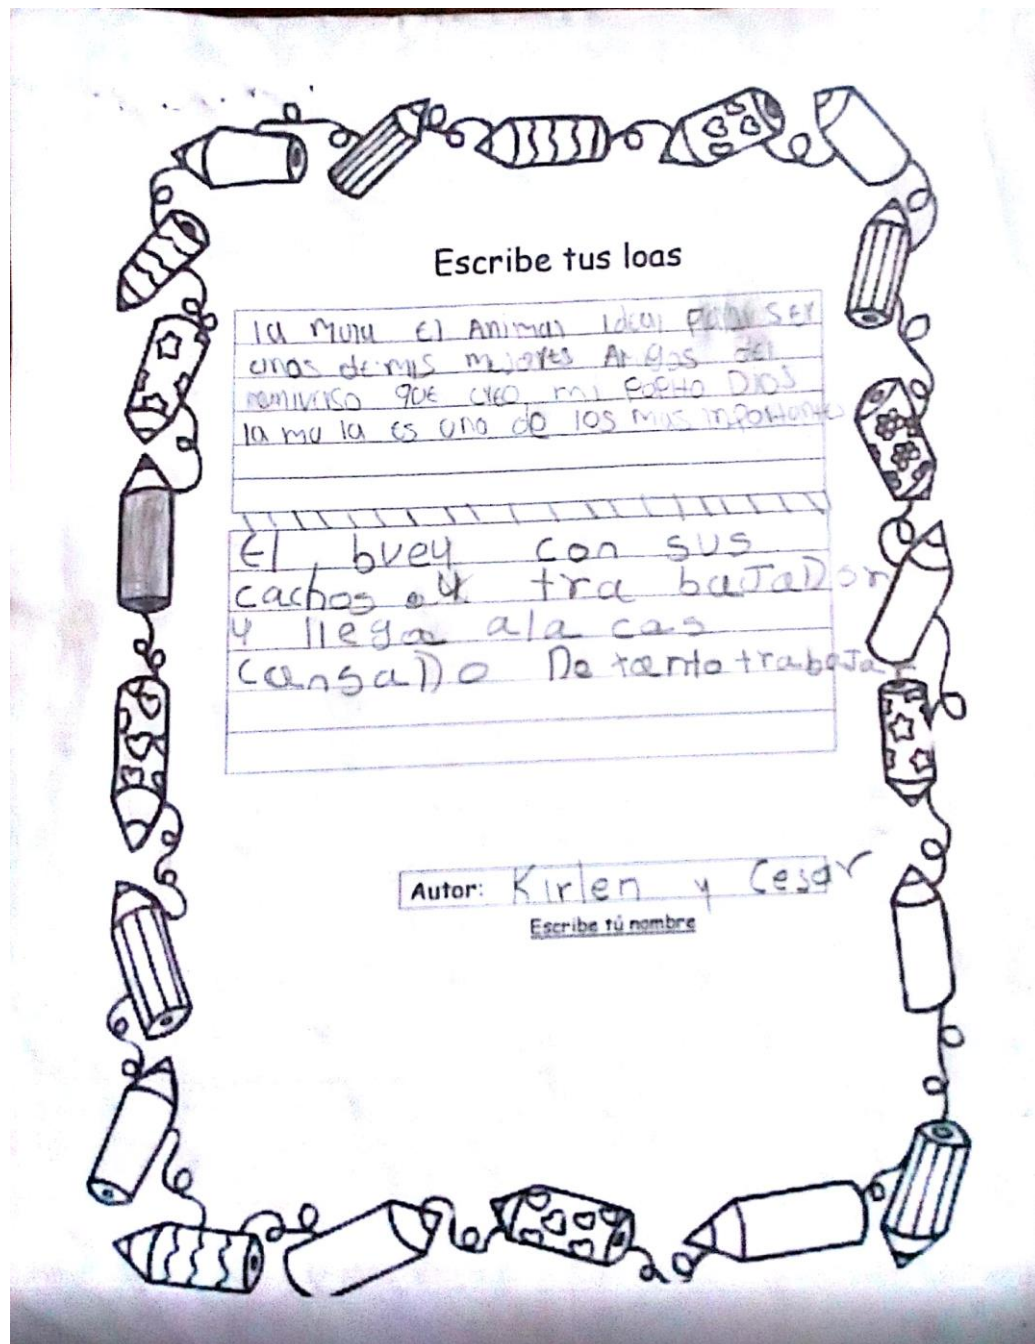 Escribe tus loas
la mula El Animal ideal para SER
unos de mis mejores Amigos del
QUE creo mi DIOS
la mu la es uno de los mas inportantes
El buey con sus
cachos y tra baJaDor
y llega ala cas
CansaDo De tanto trabaJar
Autor: Kirlen y Cesar
Escribe tú nombre